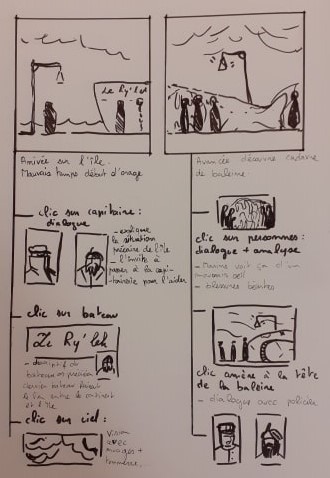 Le Ry'leh
Arrivée sur l'île.
Mauvais temps début d'orage
clic sur capitaine:
dialogue
- explique
la situation
précaire de l'île
l'invite à
passer à la capi-
tainerie pour l'aider
clic sur bateau
Le Ry'leh
- descriptif du
bateau
et l'île
clic sur ciel:
Vision
avec
nuages +
Avancée découvre cadavre
de baleine.
clic sur personnes:
dialogue + analyse
- marins voit ça d'un
mauvais oeil
- blessures béantes
clic amène à la tête
de la baleine
- dialogue avec policier